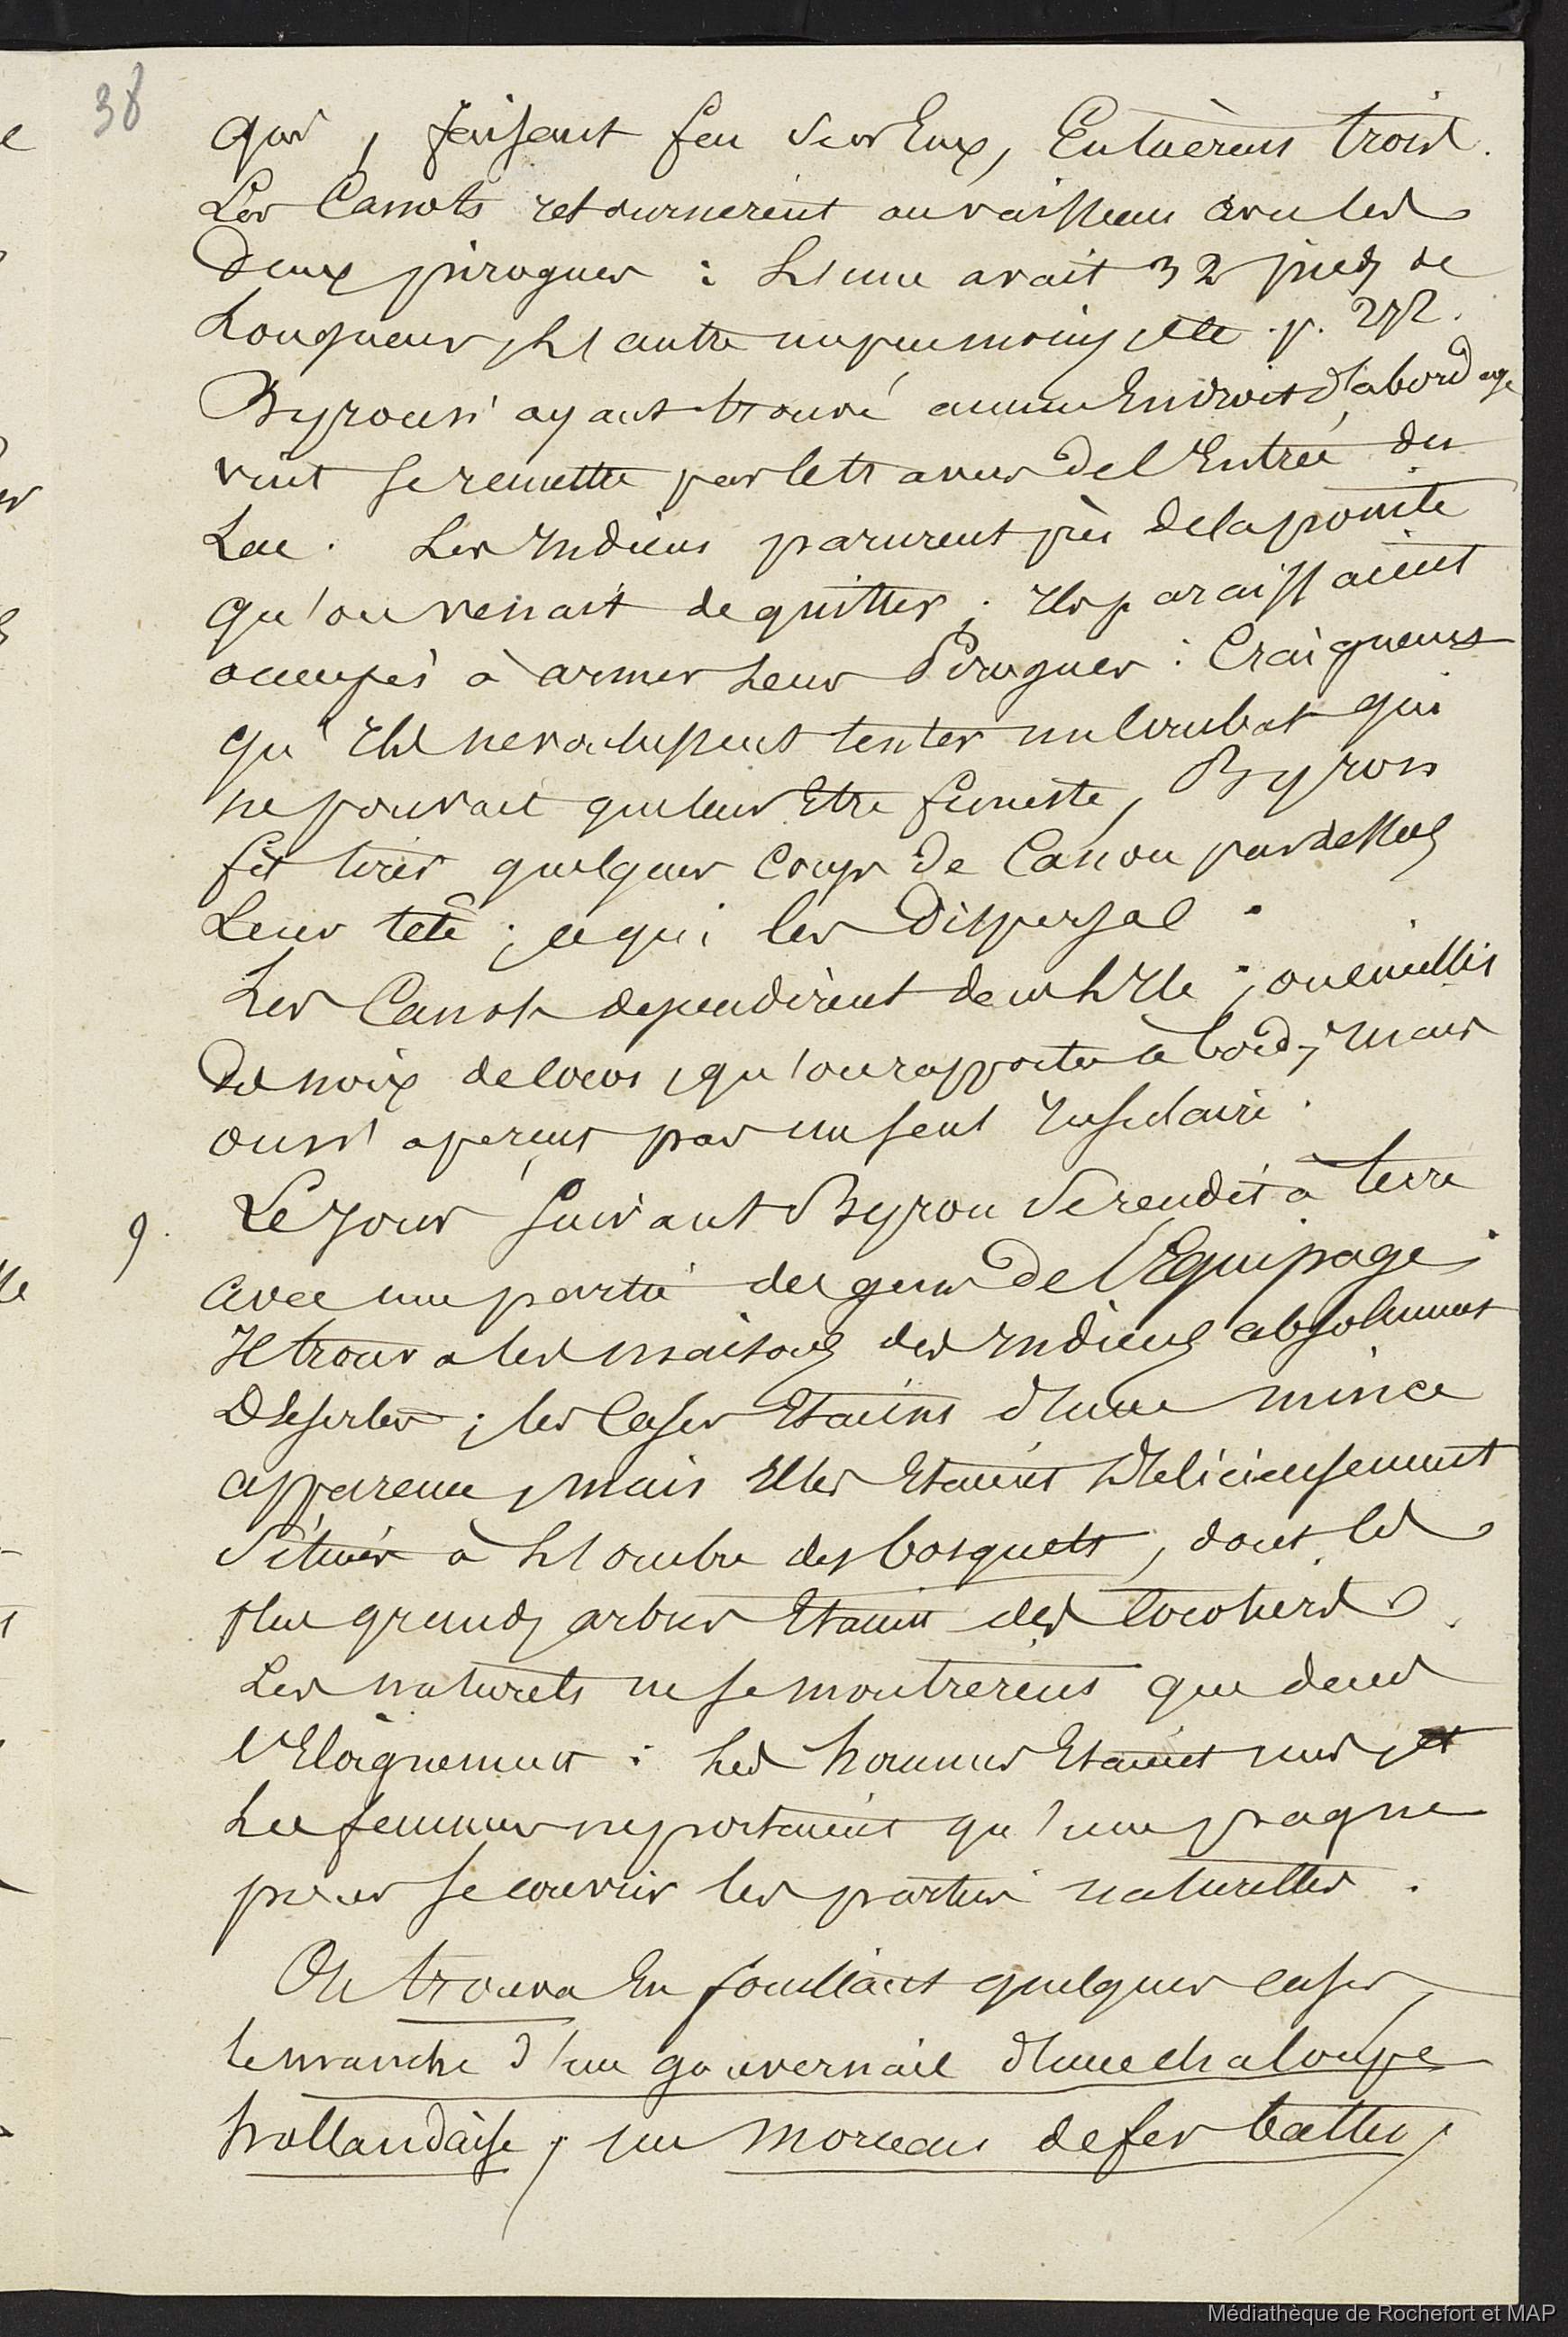 38
qui, faisant feu sur Eux, En tuèrent trois.
Les Canots retournèrent au vaisseau avec les
deux pirogues : L'une avait 32 pieds de
Longueur, L'autre un peu moins, etc. p. 272.
Byron n'ayant trouvé aucun Endroit d'abordage
vint se remettre par le travers de l'Entrée du
Lac. Les Indiens parurent près de la pointe
qu'on venait de quitter ; Ils paraissaient
occupés à armer Leurs Pirogues : Craignant
qu'Ils ne voulussent tenter un Combat qui
ne pouvait que leur Etre funeste, Byron
fit tirer quelques Coups de Canon par dessus
Leur tête ; ce qui les Dispersa.
Les Canots descendirent de wh L'Ile ; on cueillit
des noix de Cocos, qu'on rapporta à bord, Mais
on n'aperçut pas un seul Insulaire.
9. Le Jour suivant Byron se rendit à terre
avec une partie des gens de l'Equipage ;
Il trouva les maisons des Indiens absolument
Désertes ; les Cases Etaient d'une mince
apparence, Mais Elles Etaient Délicieusement
Situées à L'ombre des bosquets, dont les
plus grands arbres Etaient des Cocotiers.
Les naturels ne se montrèrent que dans
l'Eloignement : Les hommes Etaient nus, et
Les femmes ne portaient qu'une pagne
pour se couvrir les parties naturelles.
On trouva En fouillant quelques cases,
le manche d'un gouvernail d'une chaloupe
hollandaise, un Morceau de fer battu,
Médiathèque de Rochefort et MAP